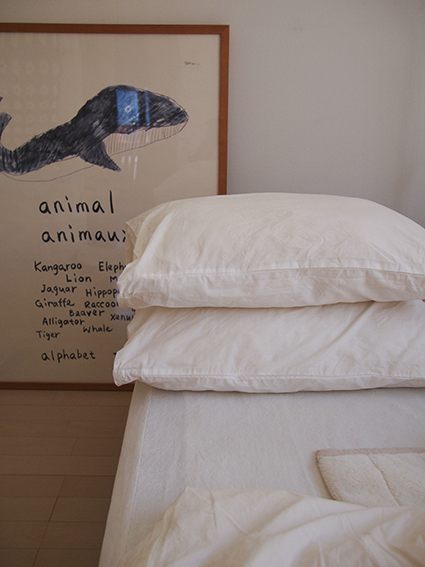 animal
animaux
Kangaroo Eleph
Lion M
Jaguar Hippopo
Giraffe Raccoo
Beaver
Alligator Xenu
Tiger Whale
alphabet